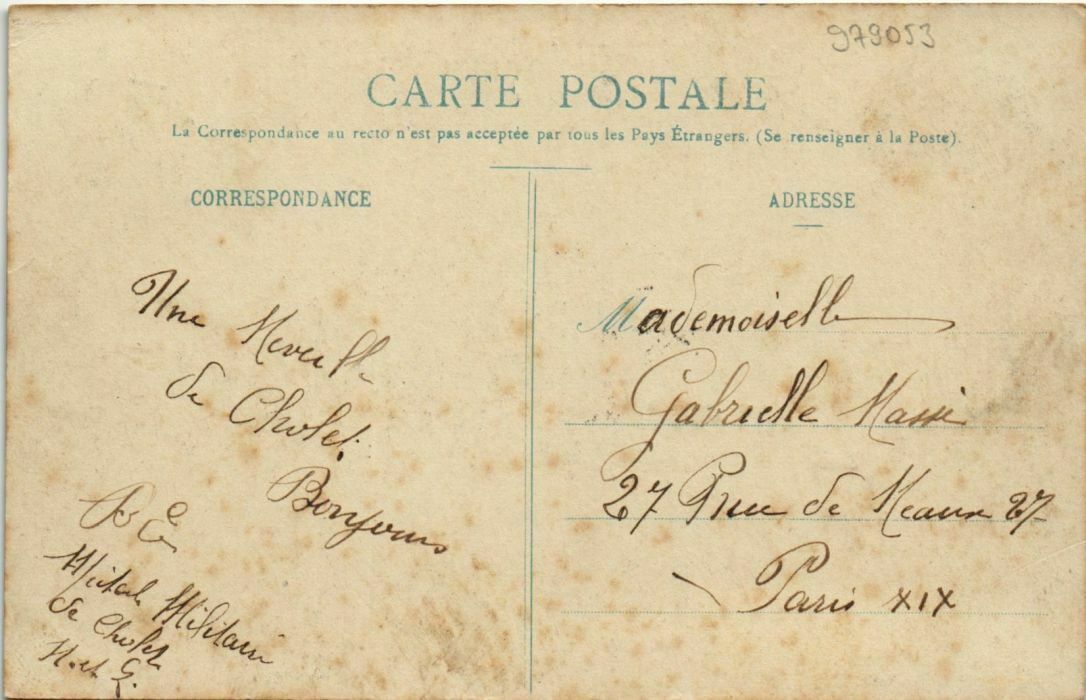 979053
CARTE POSTALE
La Correspondance au recto n'est pas acceptée par tous les Pays Étrangers. (Se renseigner à la Poste).
CORRESPONDANCE
Une Merveille
de Cholet
Bonjour
Militaire
de Cholet
M. et L.
ADRESSE
Mademoiselle
Gabrielle Massé
27 Rue de Meaux 27
Paris XIX